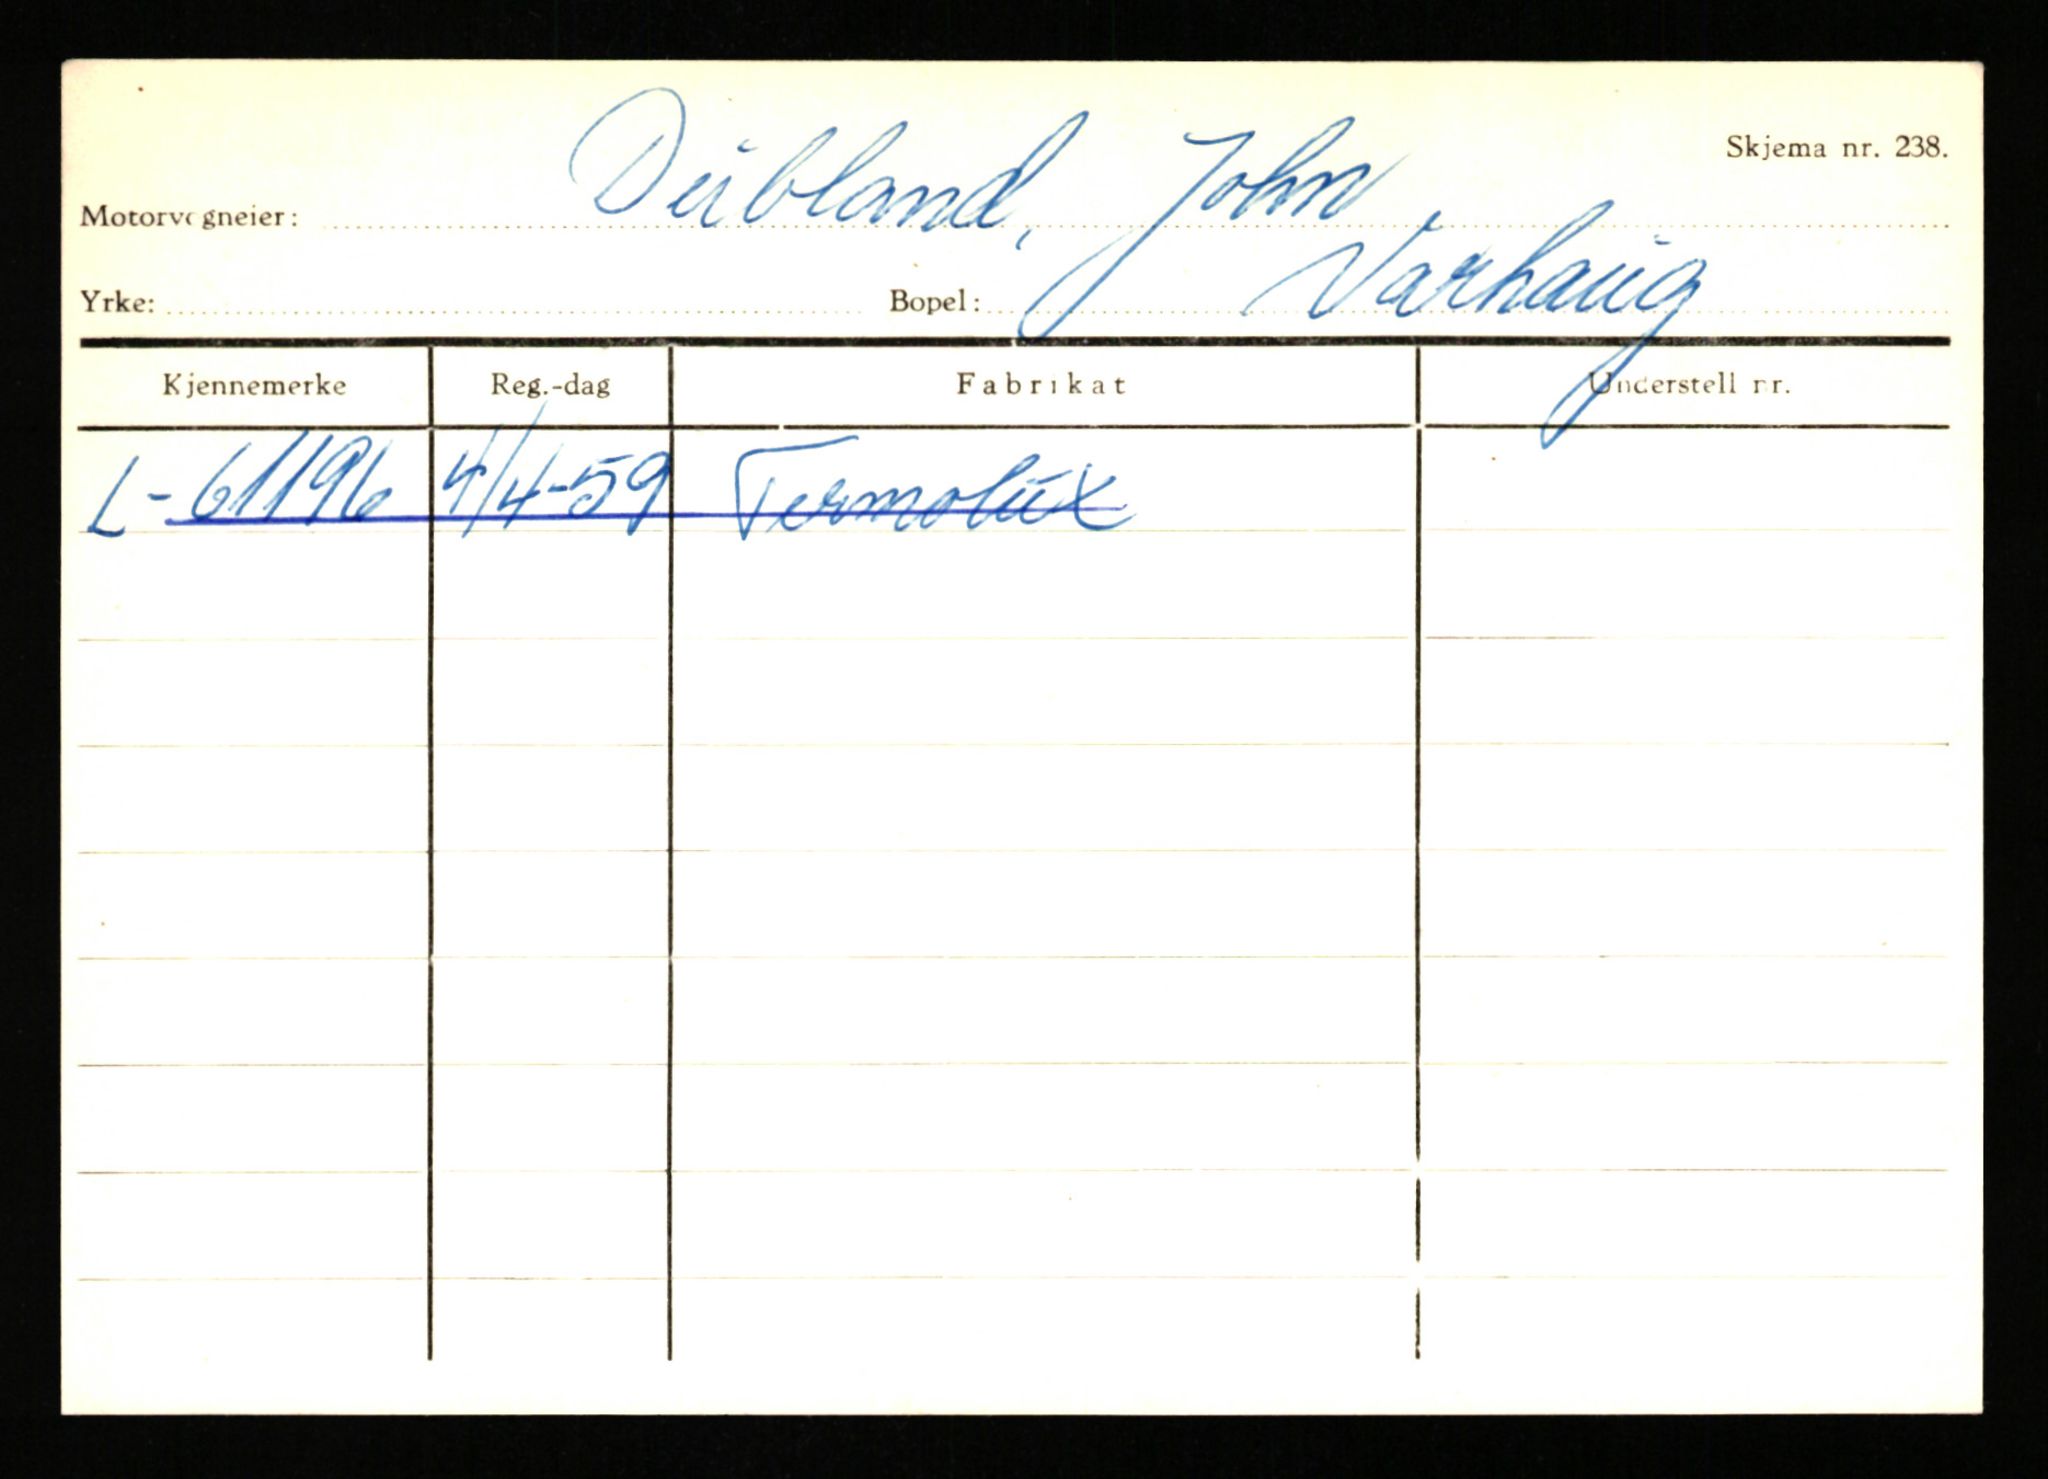 Skjema nr. 238.
Motorvogneier: Dubland, John
Yrke: Bopel: Varhaug
Kjennemerke Reg.-dag Fabrikat Understell nr.
L-61196 4/4-59 Termolux